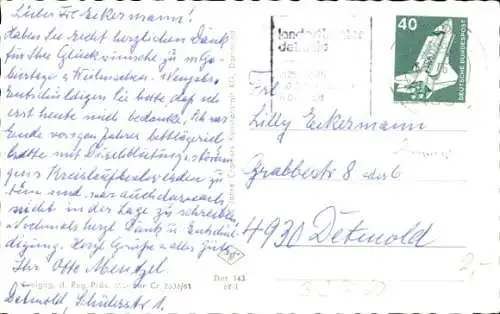 Liebes Frl. Eckermann!
Haben Sie recht herzlichen Dank
für Ihre Glückwünsche zu mein. Ge-
burtstage u. Weihnachten. Neujahr
Entschuldigen Sie bitte, daß ich
erst heute mich bedanke, ich war
Ende vorigen Jahres bettlägerig
hatte mit Durchblutungsstörun-
gen Kreislaufbeschwerden zu
tun und war auch darnach
nicht in der Lage zu schreiben.
Nochmals herzl. Dank u. Entschul-
digung. Herzl. Grüße u. alles Gute
Ihr Otto Mentzel
Detmold, Schülerstr. 1.
Freigeg. d. Reg. Präs.
Det 143
landestheater
detmold
40
DEUTSCHE BUNDESPOST
Frl.
Lilly Eckermann
Grabbestr 8
4930 Detmold
2,-